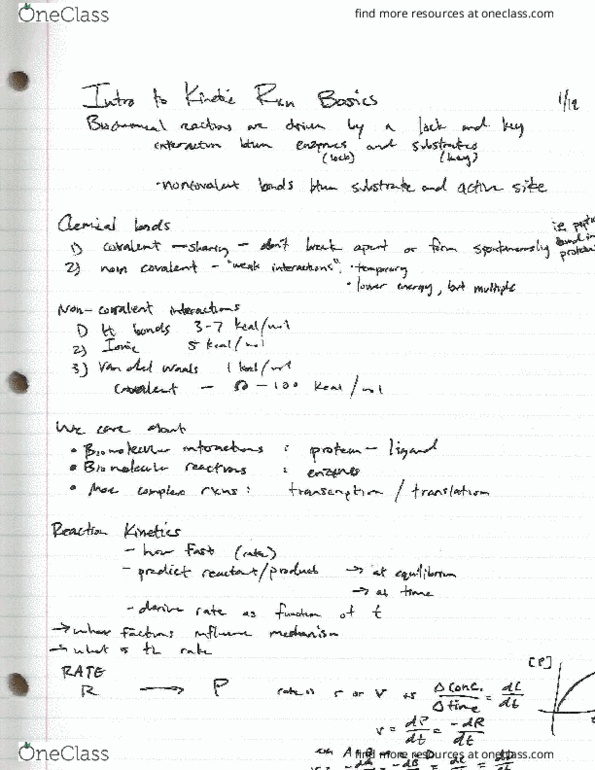 OneClass
find more resources at oneclass.com
Intro to Kinetic Rxn Basics
1/12
Biochemical reactions are driven by a lock and key
interaction btwn enzymes and substrates
(lock) (key)
·noncovalent bonds btwn substrate and active site
Chemical bonds
1) covalent — sharing — don't break apart or form spontaneously
i.e. peptide
bond in
protein
2) non covalent - "weak interactions". · temporary
· lower energy, but multiple
Non-covalent interactions
1) H bonds 3-7 kcal/mol
2) Ionic 5 kcal/mol
3) Van del Waals 1 kcal/mol
Covalent — 50 - 100 kcal/mol
We care about
• Biomolecular interactions : protein - ligand
• Biomolecular reactions : enzymes
• More complex rxns : transcription / translation
Reaction Kinetics
- how fast (rate)
- predict reactant/product → at equilibrium
→ at time
- derive rate as function of t
→ what factors influence mechanism
→ what is the rate
RATE
R → P rate is r or V as Δ Conc. / Δ time = dC / dt
[P]
v = dP / dt = -dR / dt
OneClass
find more resources at oneclass.com